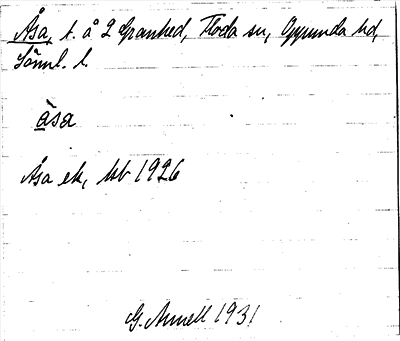 Åsa, t. å 2 Granhed, Floda sn, Oppunda hd,
Sörml. l.
åsa
Åsa ek, kb 1926
G. Annell 1931